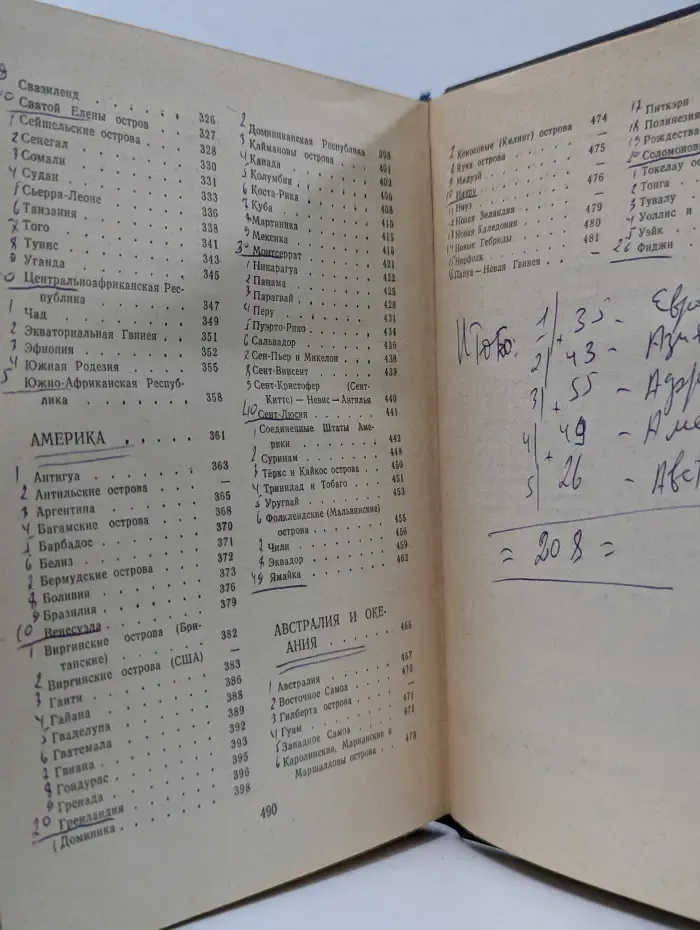 9 Свазиленд . . . . . . 326
10 Святой Елены остров . . 327
1 Сейшельские острова . . 328
2 Сенегал . . . . . . 330
3 Сомали . . . . . . 331
4 Судан . . . . . . 333
5 Сьерра-Леоне . . . . 336
6 Танзания . . . . . . 338
7 Того . . . . . . 341
8 Тунис . . . . . . 343
9 Уганда . . . . . . 345
0 Центральноафриканская Рес-
публика . . . . . . 347
1 Чад . . . . . . 349
2 Экваториальная Гвинея . . 351
3 Эфиопия . . . . . . 352
4 Южная Родезия . . . . 355
5 Южно-Африканская Респуб-
лика . . . . . . 358
АМЕРИКА . . . . . . 361
1 Антигуа . . . . . . 363
2 Антильские острова . . . —
3 Аргентина . . . . . . 365
4 Багамские острова . . . 368
5 Барбадос . . . . . . 370
6 Белиз . . . . . . 371
7 Бермудские острова . . . 372
8 Боливия . . . . . . 373
9 Бразилия . . . . . . 376
10 Венесуэла . . . . . . 379
1 Виргинские острова (Бри-
танские) . . . . . . 382
2 Виргинские острова (США) —
3 Гаити . . . . . . 383
4 Гайана . . . . . . 386
5 Гваделупа . . . . . . 388
6 Гватемала . . . . . . 389
7 Гвиана . . . . . . 392
8 Гондурас . . . . . . 393
9 Гренада . . . . . . 395
20 Гренландия . . . . . . 396
1 Доминика . . . . . . 398
2 Доминиканская Республика 398
3 Каймановы острова . . . 401
4 Канада . . . . . . 402
5 Колумбия . . . . . . 406
6 Коста-Рика . . . . . . 408
7 Куба . . . . . . 410
8 Мартиника . . . . . . 415
9 Мексика . . . . . . 416
30 Монтсеррат . . . . . . 421
1 Никарагуа . . . . . . 422
2 Панама . . . . . . 425
3 Парагвай . . . . . . 428
4 Перу . . . . . . 431
5 Пуэрто-Рико . . . . . . 434
6 Сальвадор . . . . . . 436
7 Сен-Пьер и Микелон . . . 438
8 Сент-Винсент . . . . . . 439
9 Сент-Кристофер (Сент-
Киттс) — Невис — Ангилья 440
40 Сент-Люсия . . . . . . 441
1 Соединенные Штаты Аме-
рики . . . . . . 442
2 Суринам . . . . . . 448
3 Тёркс и Кайкос острова . . 450
4 Тринидад и Тобаго . . . 451
5 Уругвай . . . . . . 453
6 Фолклендские (Мальвинские)
острова . . . . . . 455
7 Чили . . . . . . 456
8 Эквадор . . . . . . 459
49 Ямайка . . . . . . 462
АВСТРАЛИЯ И ОКЕ-
АНИЯ . . . . . . 465
1 Австралия . . . . . . 467
2 Восточное Самоа . . . . 470
3 Гилберта острова . . . . —
4 Гуам . . . . . . 471
5 Западное Самоа . . . . 472
6 Каролинские, Марианские и
Маршалловы острова . . 473
490
7 Кокосовые (Килинг) острова 474
8 Кука острова . . . . . . —
9 Мидуэй . . . . . . 475
10 Науру . . . . . . —
11 Ниуэ . . . . . . 476
12 Новая Зеландия . . . . —
13 Новая Каледония . . . . 479
14 Новые Гебриды . . . . 480
15 Норфолк . . . . . . 481
16 Папуа — Новая Гвинея . . —
17 Питкэрн
18 Полинезия
19 Рождества
20 Соломоновы
1 Токелау
2 Тонга
3 Тувалу
4 Уоллис и
5 Уэйк
26 Фиджи
Итого: 1 35 - Евро
2 + 43 - Ази
3 55 - Афр
4 + 49 - Аме
5 + 26 - Авст
= 208 =